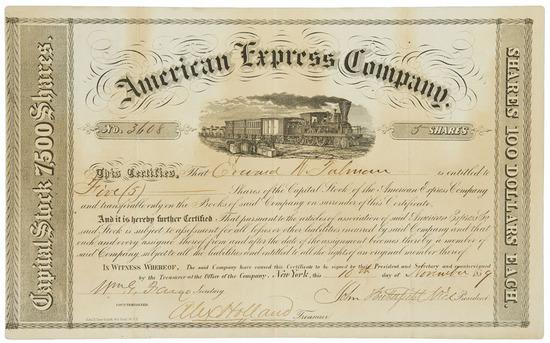 American Express Company.
Capital Stock 7500 Shares.
SHARES 100 DOLLARS EACH.
No. 3608
5 SHARES
This Certifies, That Edward N. Talman is entitled to
Five (5) Shares of the Capital Stock of the American Express Company
and transferable only on the Books of said Company on surrender of this Certificate.
And it is hereby further Certified That pursuant to the articles of association of said American Express Co.
said Stock is subject to assessment for all losses or other liabilities incurred by said Company and that
each and every assignee thereof from and after the date of the assignment becomes thereby a member of
said Company subject to all the liabilities and entitled to all the rights of an original member thereof.
IN WITNESS WHEREOF, The said Company have caused this Certificate to be signed by their President and Secretary and countersigned
by the Treasurer at the Office of the Company, New York, this 10th of November 1859
Wm G. Fargo Secretary
John Butterfield President
COUNTERSIGNED
Alex Holland Treasurer